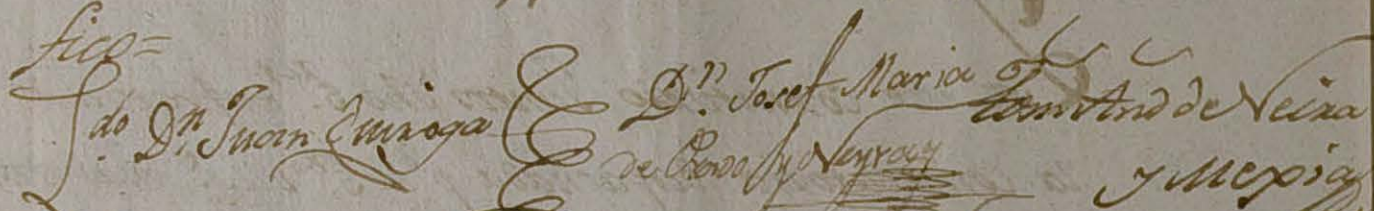 fico=
Ldo. Dn. Juan Quiroga
Dn. Josef Maria
de Prado y Neyra
And de Neira
y Mexia